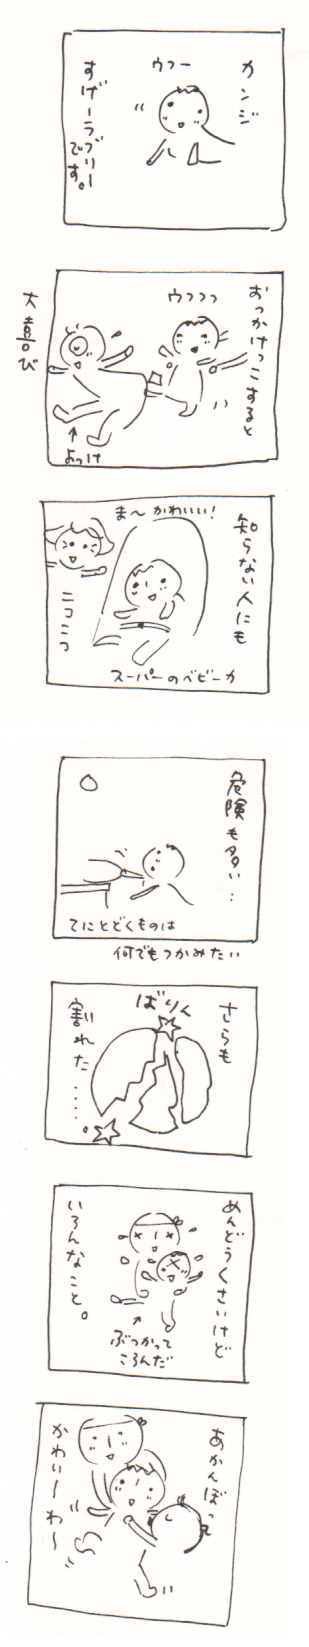 カンジ
ウフー
すげーラブリー
です。
おっかけっこすると
ウフフフ
大喜び
よっけ
知らない人にも
ま〜かわいい!
ニコニコ
スーパーのベビーカ
危険も多い…
てにとどくものは
何でもつかみたい
さらも
ばりん
割れた……。
めんどうくさいけど
いろんなこと。
ぶつかって
ころんだ
あかんぼって
かわいーわ〜